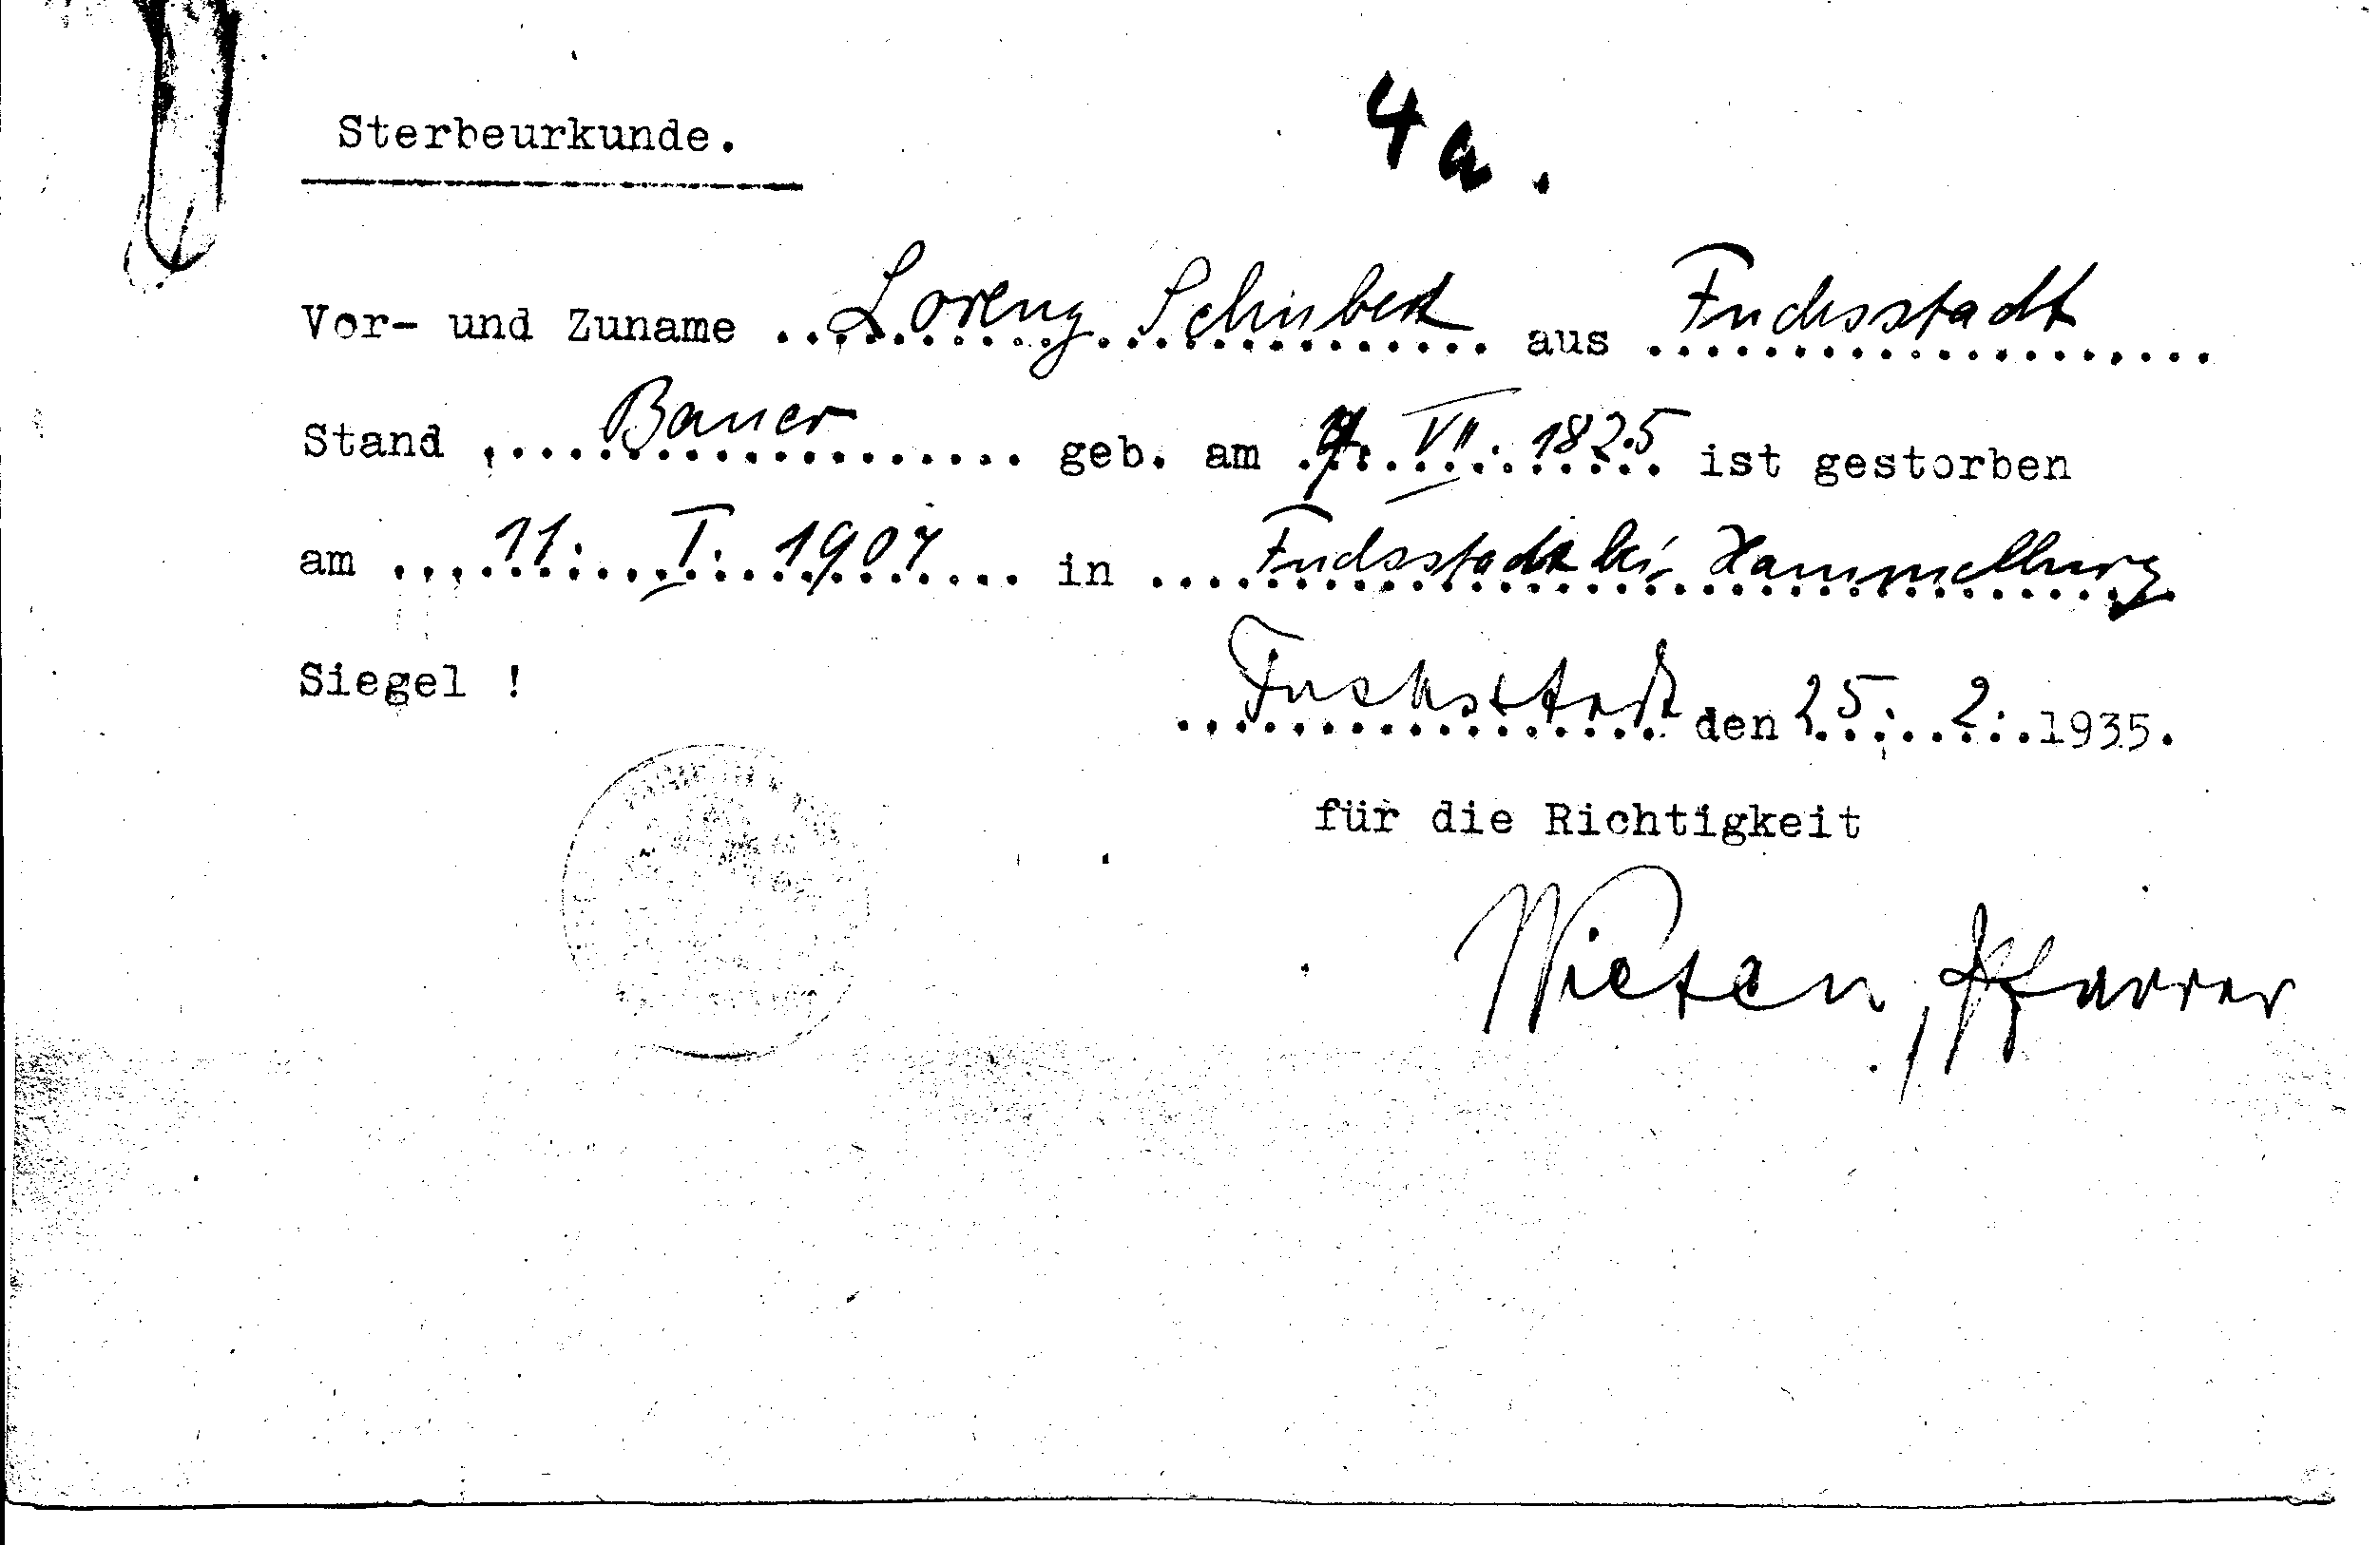 Sterbeurkunde.
4a.
Vor- und Zuname Lorenz Schubert aus Fuchsstadt
Stand Bauer geb. am VII. 1825 ist gestorben
am 11. I. 1907 in Fuchsstadt bei Hammelburg
Siegel !
Fuchsstadt den 25. 2. 1935.
für die Richtigkeit
, Pfarrer